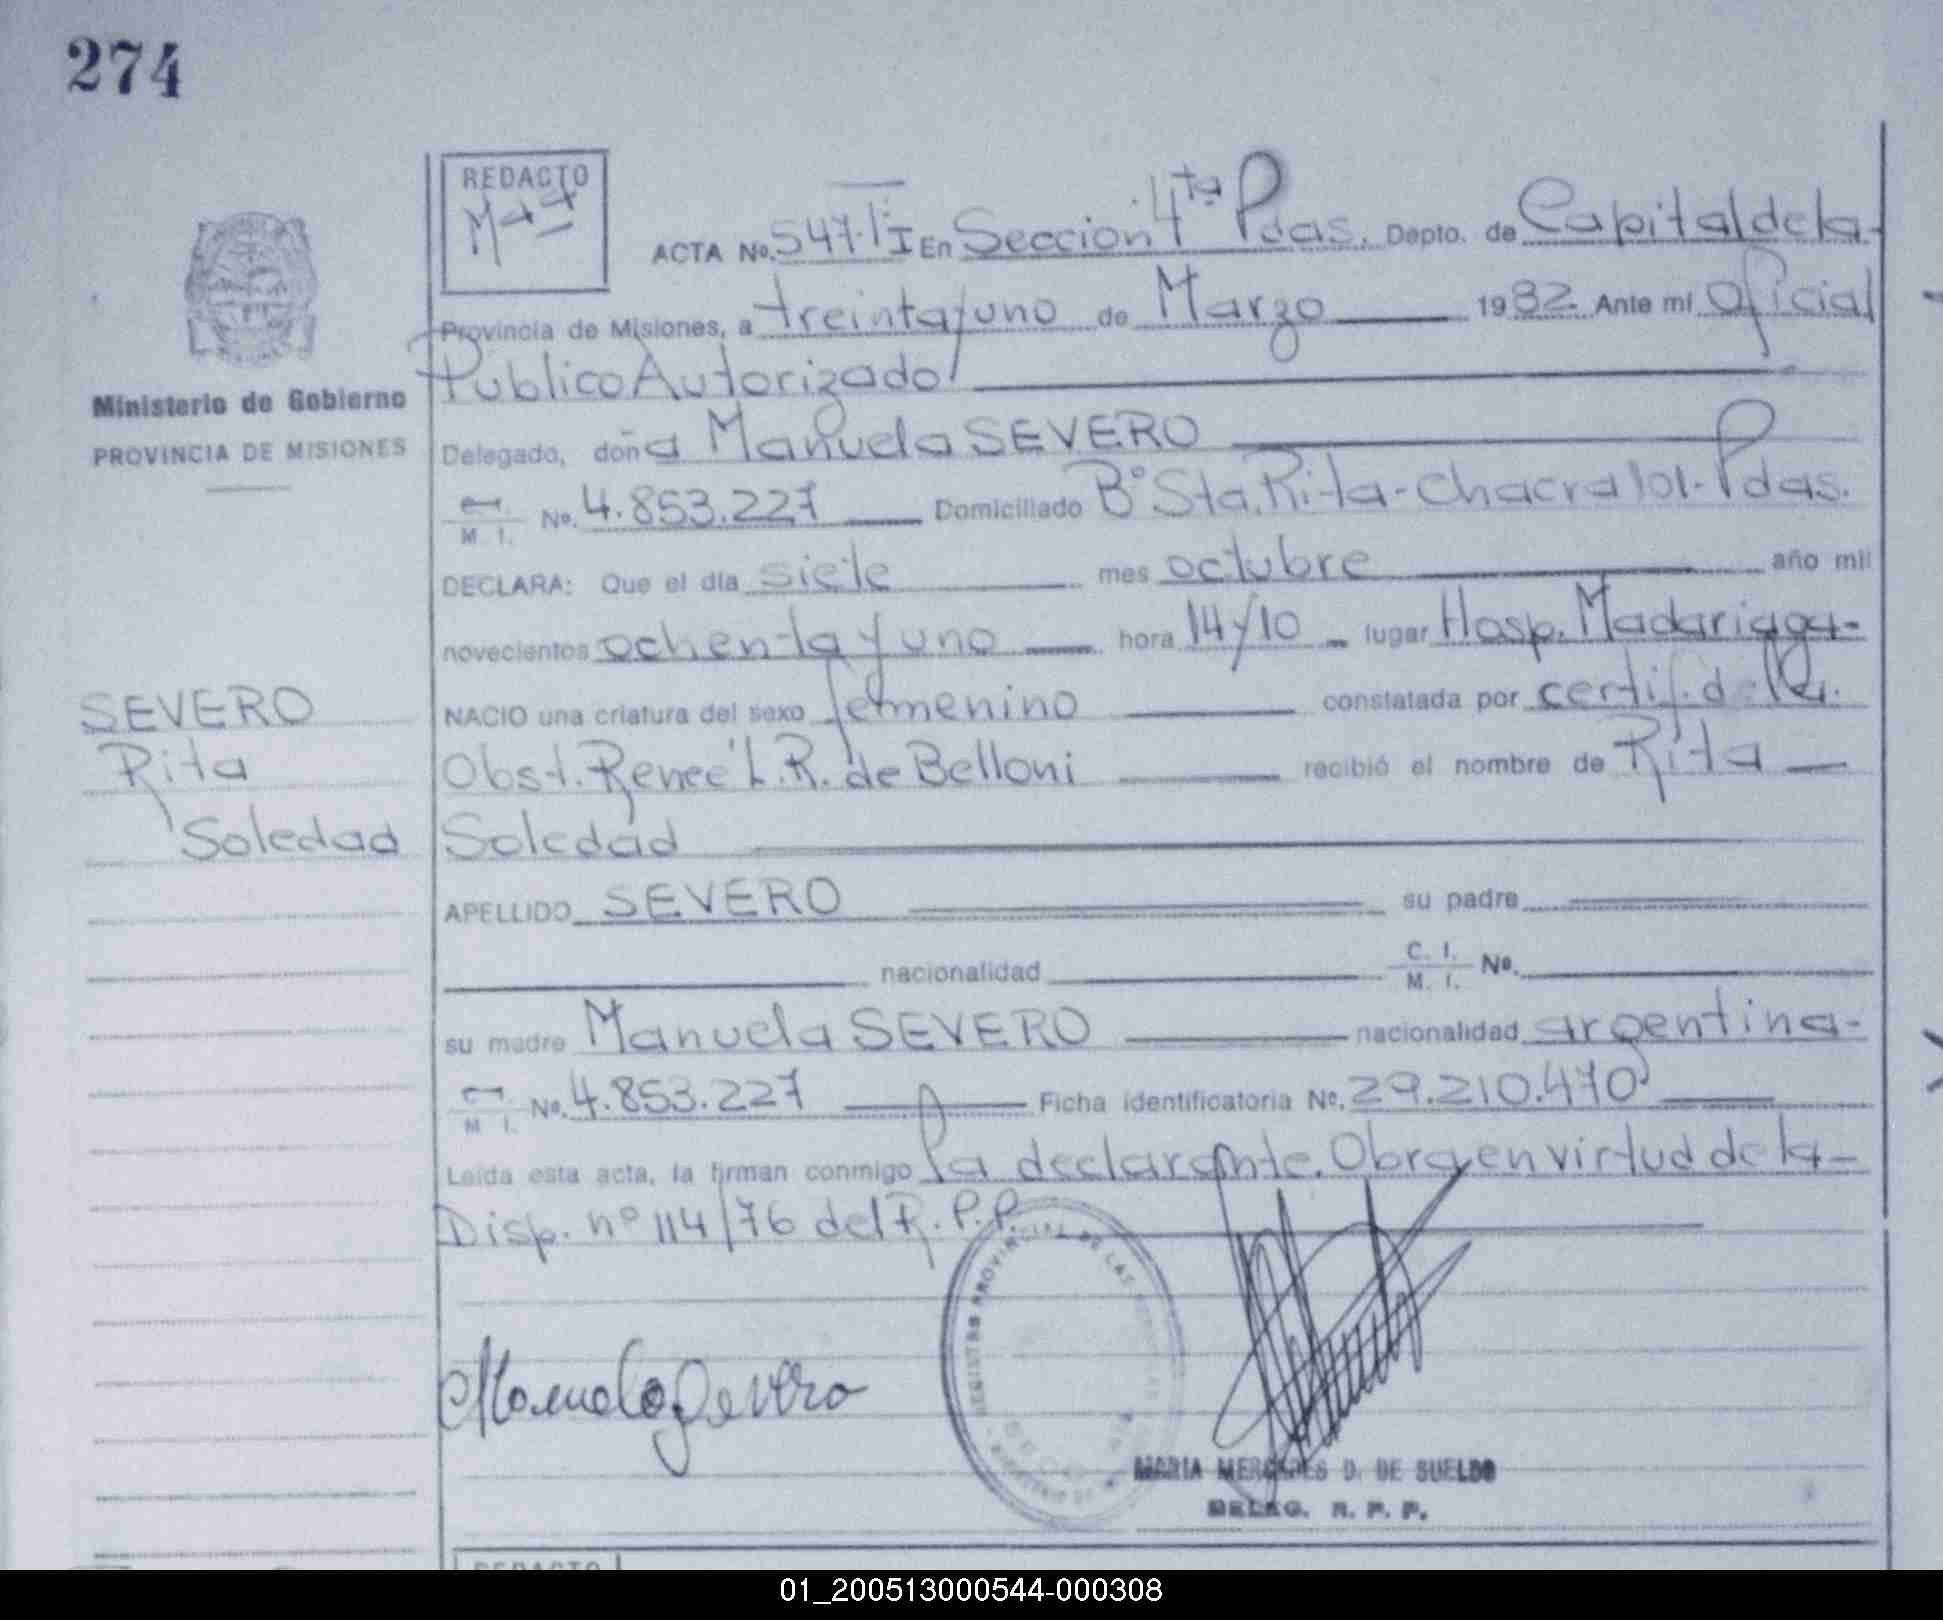 274
REDACTO
ACTA No. 547-T°I En Sección 4ta Pdas. Depto. de Capital de la-
Provincia de Misiones, a treinta y uno de Marzo 1982 Ante mi Oficial
Público Autorizado
Ministerio de Gobierno
PROVINCIA DE MISIONES
Delegado, doña Manuela SEVERO
M. I. No. 4.853.227 Domiciliado B° Sta. Rita - Chacra 101 - Pdas.
DECLARA: Que el día siete mes octubre año mil
novecientos ochenta y uno hora 14 y 10 lugar Hosp. Madariaga-
SEVERO
Rita
Soledad
NACIO una criatura del sexo femenino constatada por certif. de la
Obst. Renee L. R. de Belloni recibió el nombre de Rita
Soledad
APELLIDO SEVERO su padre
nacionalidad C. I. M. I. No.
su madre Manuela SEVERO nacionalidad argentina-
M. I. No. 4.853.227 Ficha identificatoria No. 29.210.470
Leída esta acta, la firman conmigo la declarante. Obra en virtud de la-
Disp. n° 114/76 del R. P. P.
REGISTRO PROVINCIAL DE LAS PERSONAS
Manuela Severo
MARIA MERCEDES D. DE SUELDO
DELEG. R. P. P.
REDACTO
01_200513000544-000308